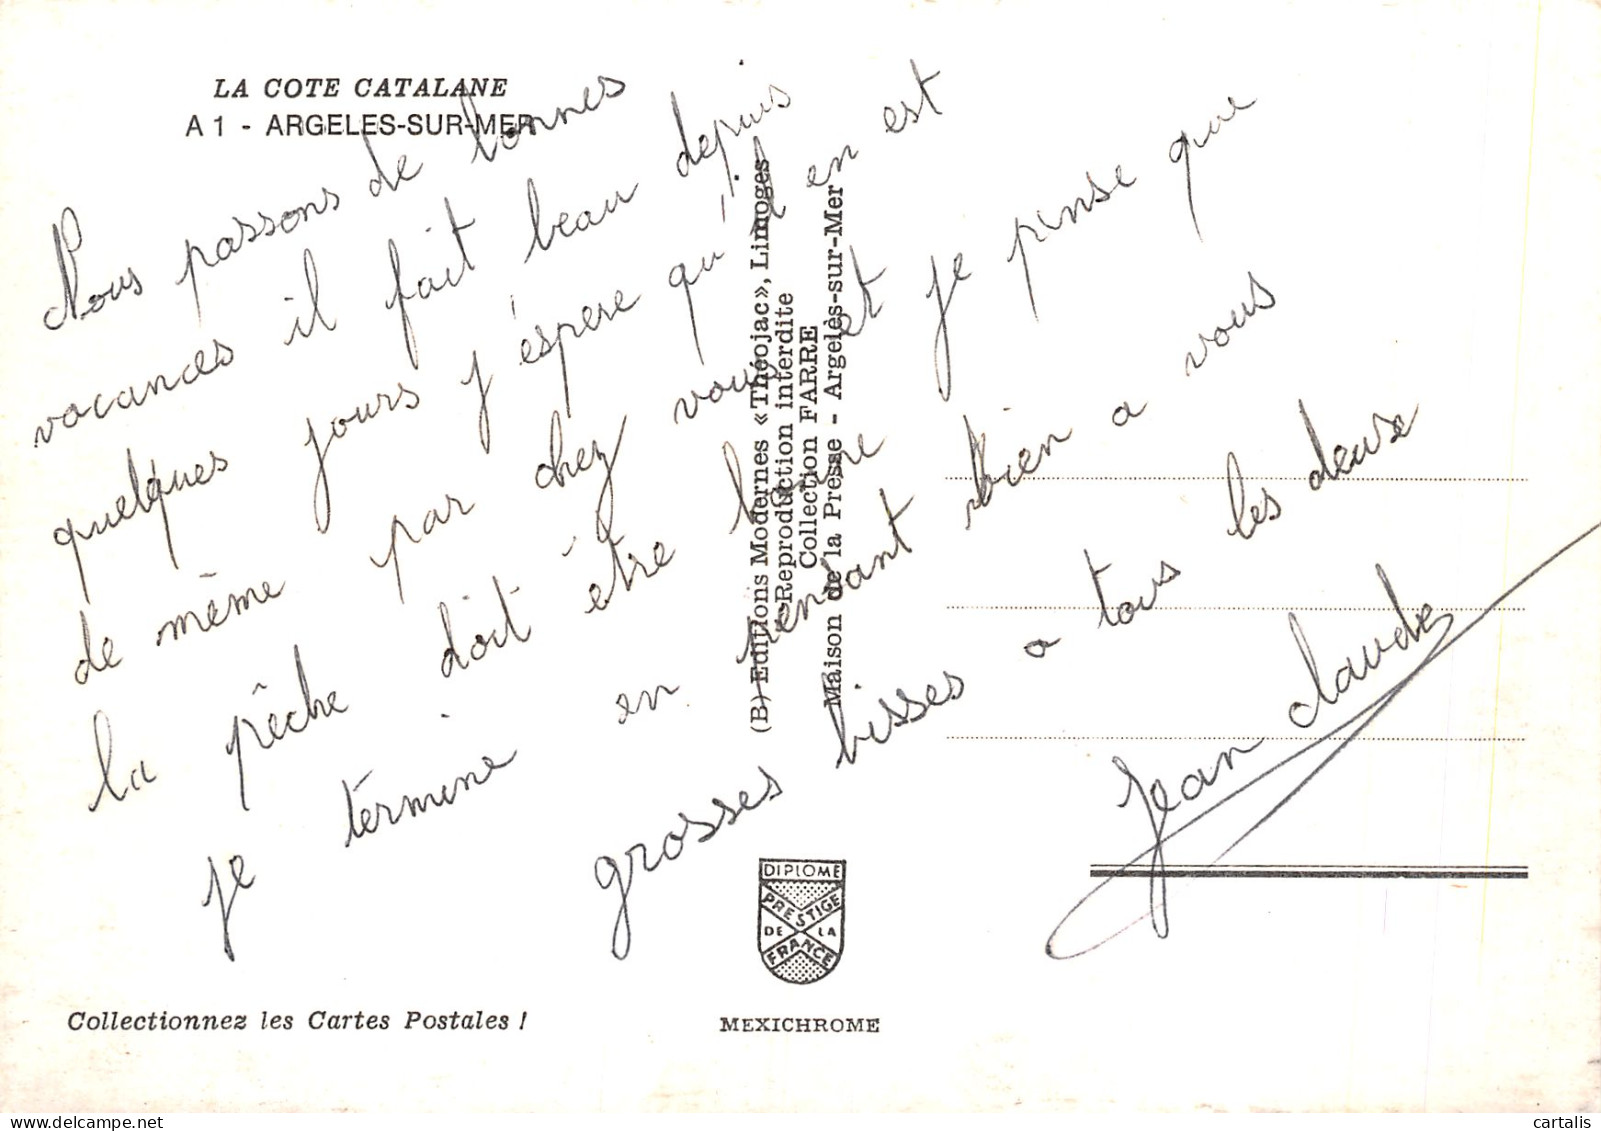 LA COTE CATALANE
A 1 - ARGELES-SUR-MER
Nous passons de bonnes
vacances il fait beau depuis
quelques jours j'éspere qu'il en est
de même par chez vous et je pense que
la pêche doit être bonne
je termine en pensant bien a vous
grosses bisses a tous les deux
Jean claude
(B) Editions Modernes «Théojac», Limoges
Reproduction interdite
Collection FARRE
Maison de la Presse - Argelès-sur-Mer
DIPLOME
PRESTIGE
DE LA
FRANCE
Collectionnez les Cartes Postales !
MEXICHROME
cartalis